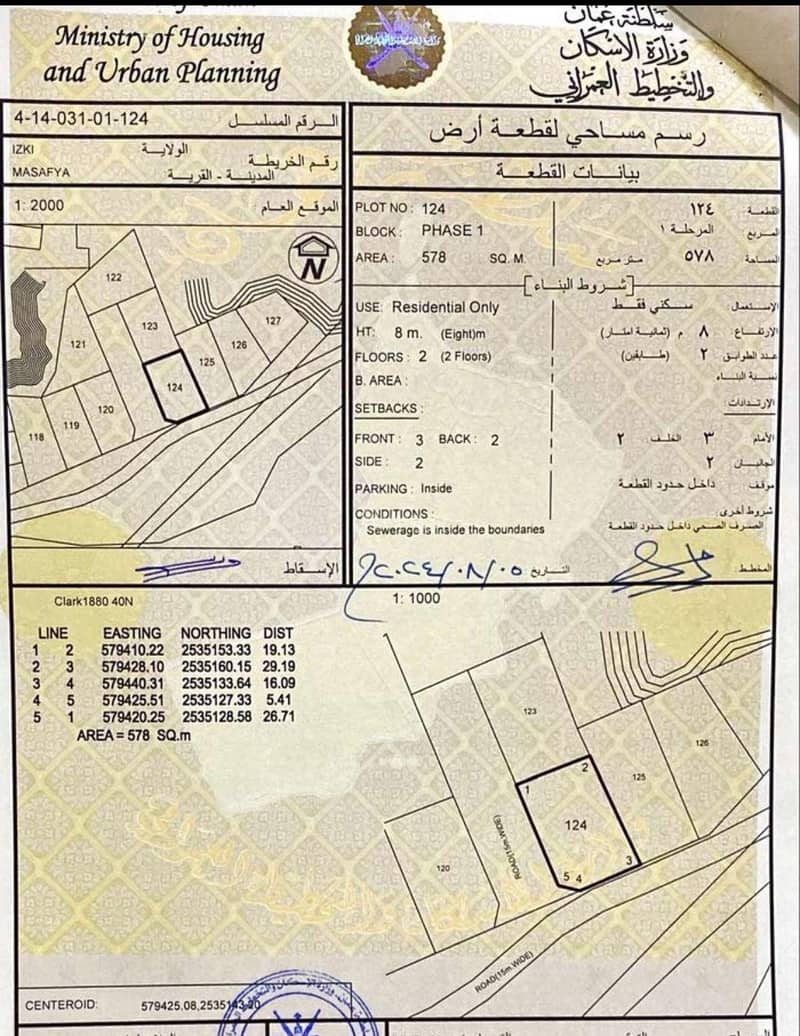 Ministry of Housing
and Urban Planning
سلطنة عمان
وزارة الاسكان
والتخطيط العمراني
4-14-031-01-124 الرقم المسلسل
IZKI الولاية
رقم الخريطة
MASAFYA المدينة - القرية
1: 2000 الموقع العام
N
122
123
127
126
121
125
124
120
119
118
الإسقاط
رسم مساحي لقطعة أرض
بيانات القطعة
PLOT NO : 124 ١٢٤ القطعة
BLOCK : PHASE 1 المرحلة ١ المربع
AREA : 578 SQ. M. متر مربع ٥٧٨ المساحة
شروط البناء
USE: Residential Only سكني فقط الإستعمال
HT: 8 m. (Eight)m (ثمانية امتار) م ٨ الإرتفاع
FLOORS : 2 (2 Floors) (طابقين) ٢ عدد الطوابق
B. AREA : نسبة البناء
SETBACKS : الإرتدادات
FRONT : 3 BACK : 2 ٢ الخلف ٣ الأمام
SIDE : 2 ٢ الجانبان
PARKING : Inside داخل حدود القطعة موقف
CONDITIONS : شروط أخرى
Sewerage is inside the boundaries الصرف الصحي داخل حدود القطعة
التاريخ
المخطط
Clark1880 40N
1: 1000
LINE EASTING NORTHING DIST
1 2 579410.22 2535153.33 19.13
2 3 579428.10 2535160.15 29.19
3 4 579440.31 2535133.64 16.09
4 5 579425.51 2535127.33 5.41
5 1 579420.25 2535128.58 26.71
AREA = 578 SQ.m
123
126
125
2
1
124
3
5 4
120
ROAD(15m.WIDE)
ROAD(15m.WIDE)
CENTEROID: 579425.08,2535143.20